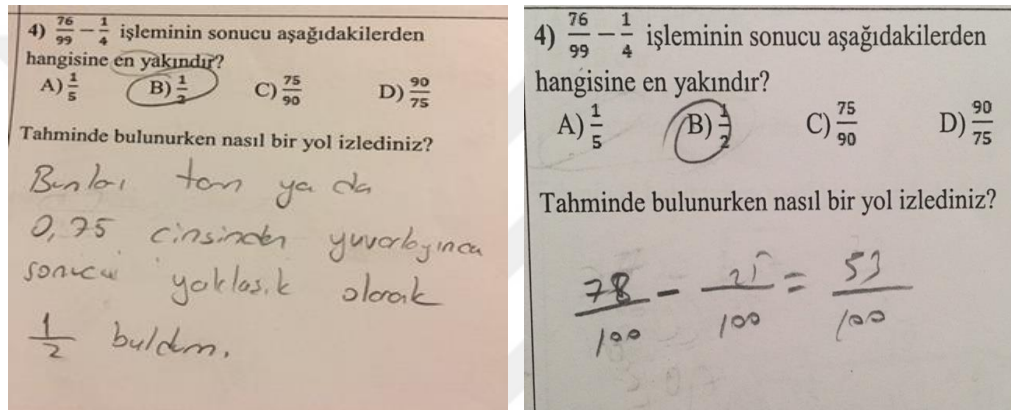 4) 76/99 − 1/4 işleminin sonucu aşağıdakilerden
hangisine en yakındır?
A) 1/5 B) 1/2 C) 75/90 D) 90/75
Tahminde bulunurken nasıl bir yol izlediniz?
Bunları tam ya da
0,75 cinsinden yuvarlayınca
sonucu yaklaşık olarak
1/2 buldum.
4) 76/99 − 1/4 işleminin sonucu aşağıdakilerden
hangisine en yakındır?
A) 1/5 B) 1/2 C) 75/90 D) 90/75
Tahminde bulunurken nasıl bir yol izlediniz?
78/100 - 25/100 = 53/100